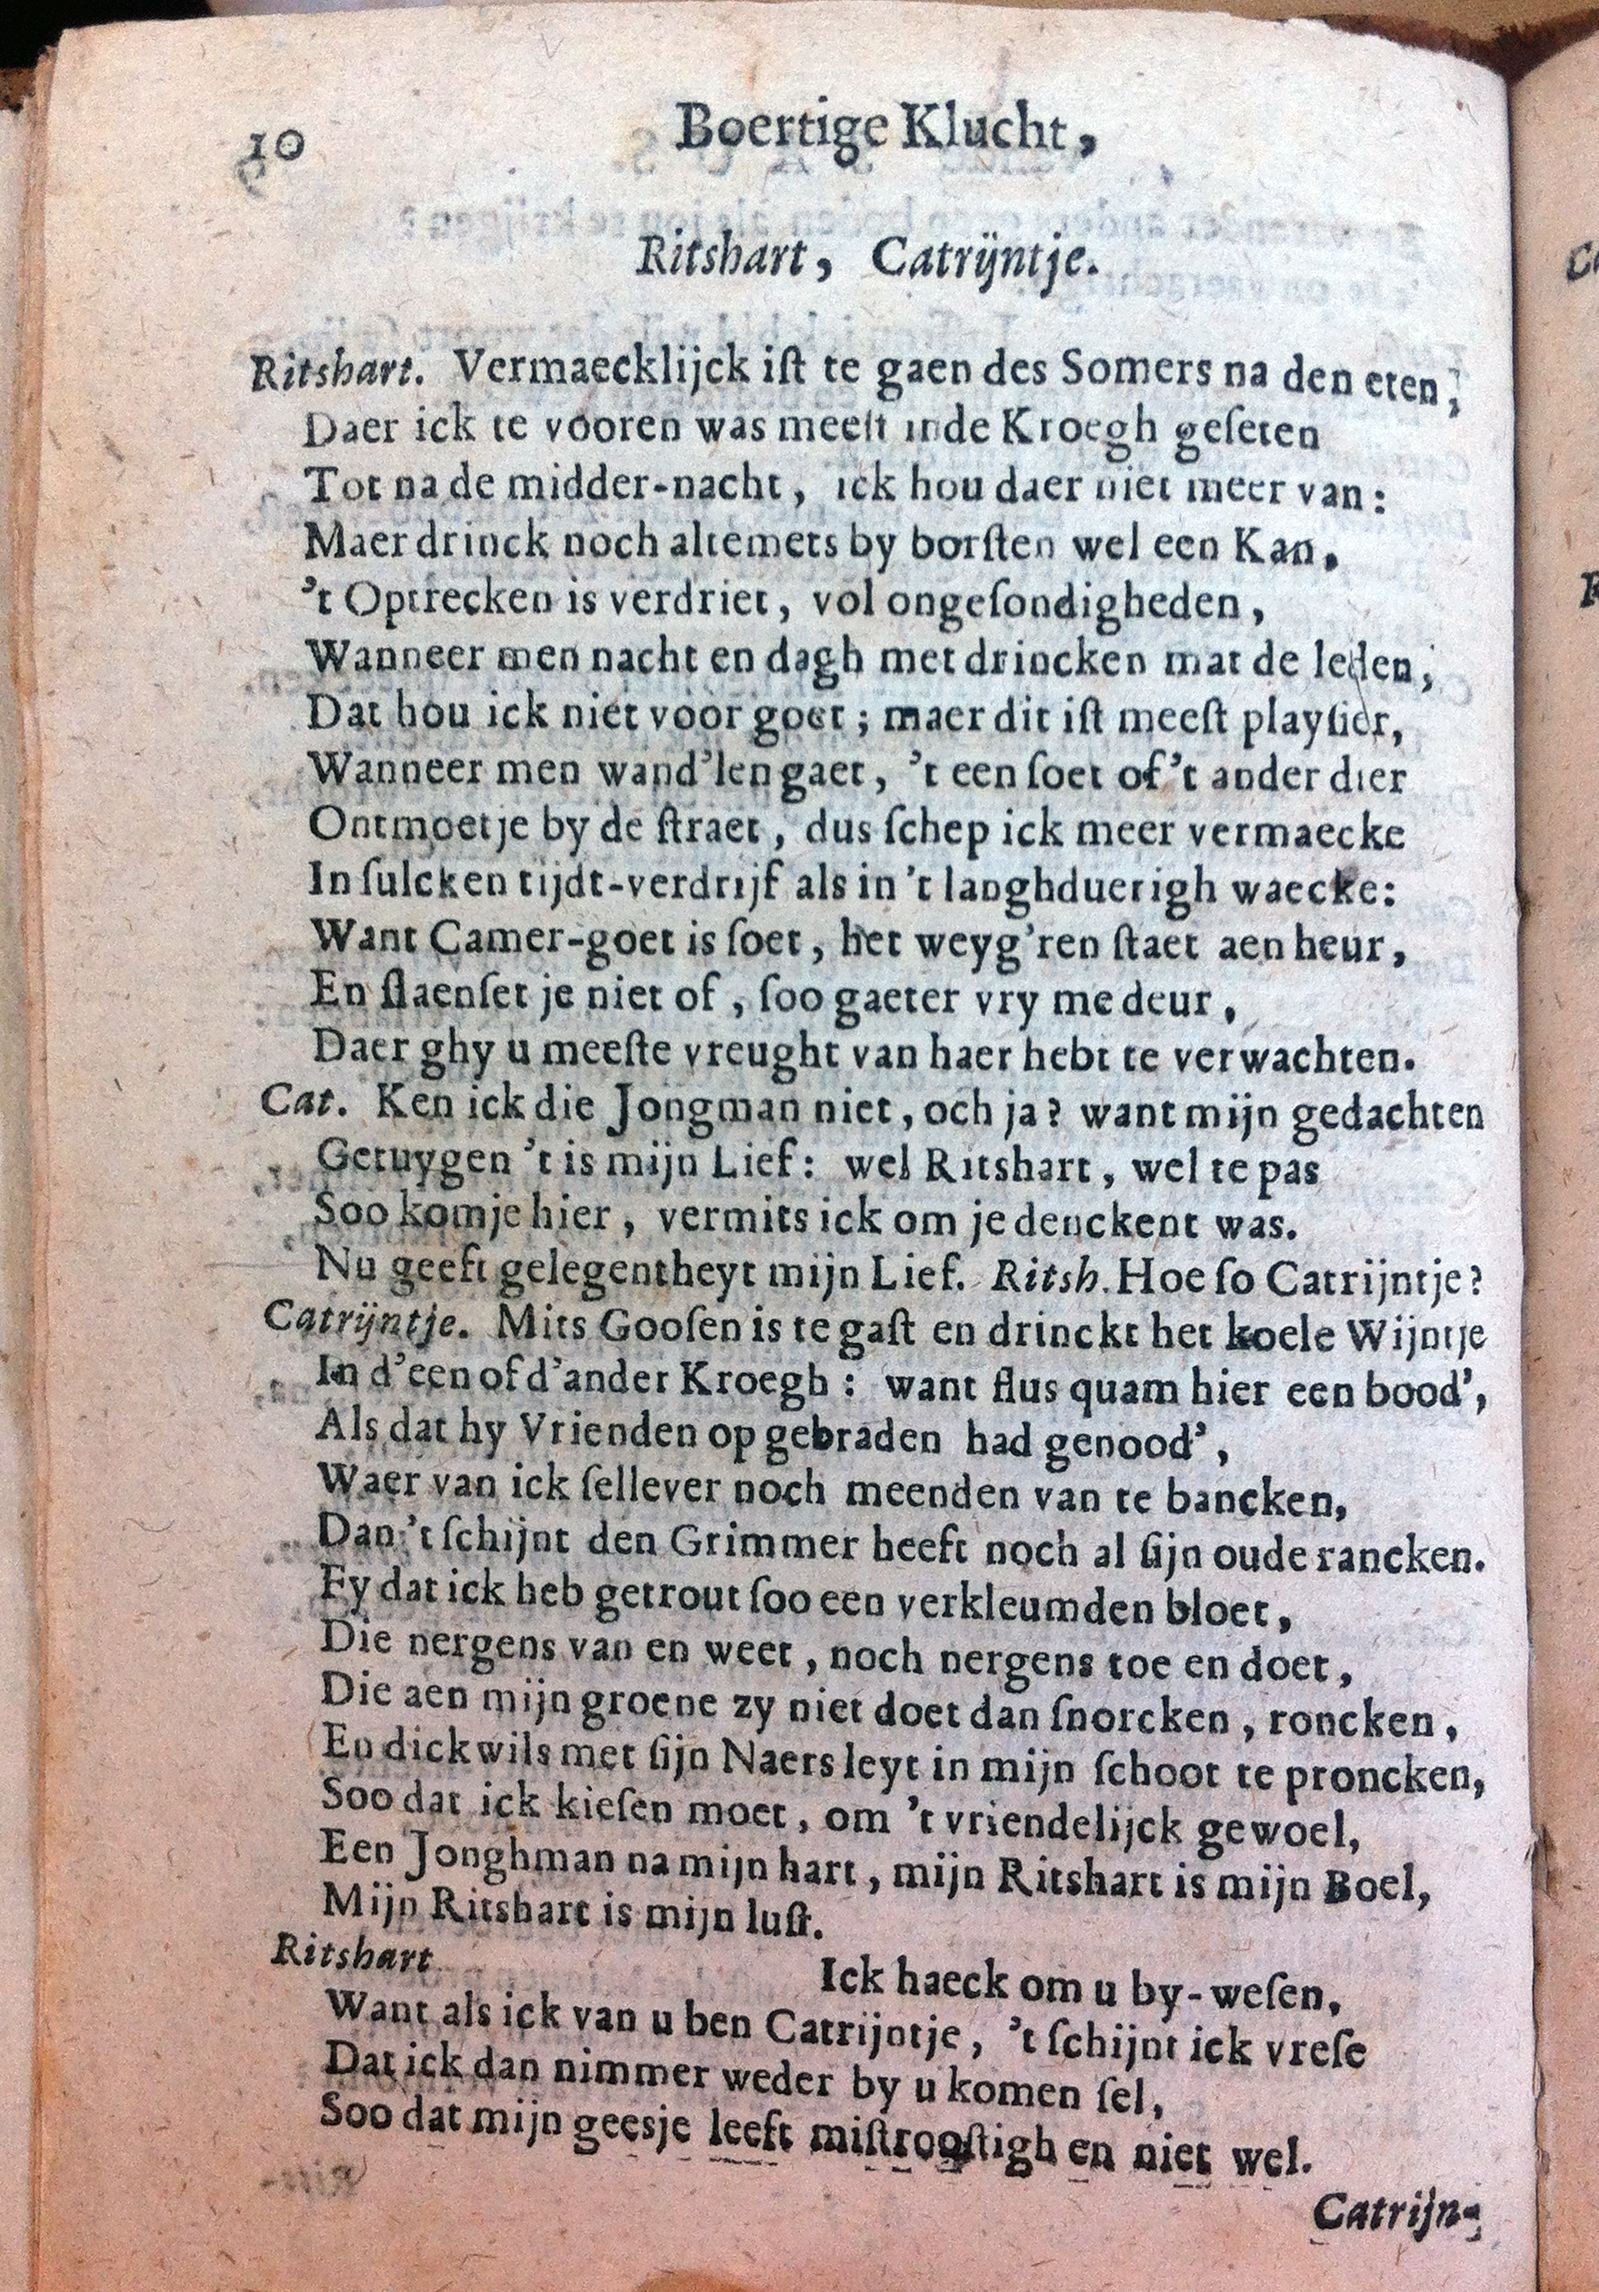 10 Boertige Klucht,
Ritshart, Catrijntje.
Ritshart. Vermaecklijck iſt te gaen des Somers na den eten,
Daer ick te vooren was meeſt inde Kroegh geſeten
Tot na de midder-nacht, ick hou daer niet meer van:
Maer drinck noch altemets by borſten wel een Kan,
't Optrecken is verdriet, vol ongeſondigheden,
Wanneer men nacht en dagh met drincken mat de leden,
Dat hou ick niet voor goet; maer dit iſt meeſt playſier,
Wanneer men wand'len gaet, 't een ſoet of 't ander dier
Ontmoetje by de ſtraet, dus ſchep ick meer vermaecke
In ſulcken tijdt-verdrijf als in 't langhduerigh waecke:
Want Camer-goet is ſoet, het weyg'ren ſtaet aen heur,
En ſlaenſet je niet of, ſoo gaeter vry me deur,
Daer ghy u meeſte vreught van haer hebt te verwachten.
Cat. Ken ick die Jongman niet, och ja? want mijn gedachten
Getuygen 't is mijn Lief: wel Ritshart, wel te pas
Soo komje hier, vermits ick om je denckent was.
Nu geeft gelegentheyt mijn Lief. Ritsh. Hoe ſo Catrijntje?
Catrijntje. Mits Gooſen is te gaſt en drinckt het koele Wijntje
In d'een of d'ander Kroegh: want flus quam hier een bood',
Als dat hy Vrienden op gebraden had genood',
Waer van ick ſellever noch meenden van te bancken,
Dan 't ſchijnt den Grimmer heeft noch al ſijn oude rancken.
Fy dat ick heb getrout ſoo een verkleumden bloet,
Die nergens van en weet, noch nergens toe en doet,
Die aen mijn groene zy niet doet dan ſnorcken, roncken,
En dickwils met ſijn Naers leyt in mijn ſchoot te proncken,
Soo dat ick kieſen moet, om 't vriendelijck gewoel,
Een Jonghman na mijn hart, mijn Ritshart is mijn Boel,
Mijn Ritshart is mijn luſt.
Ritshart Ick haeck om u by-weſen,
Want als ick van u ben Catrijntje, 't ſchijnt ick vreſe
Dat ick dan nimmer weder by u komen ſel,
Soo dat mijn geesje leeft miſtrooſtigh en niet wel.
Catrijn-